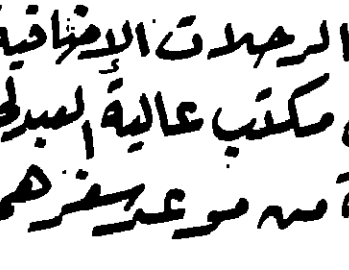 الرحلات الإضافية
مكتب عالية العبدلي
من موعد سفرهم